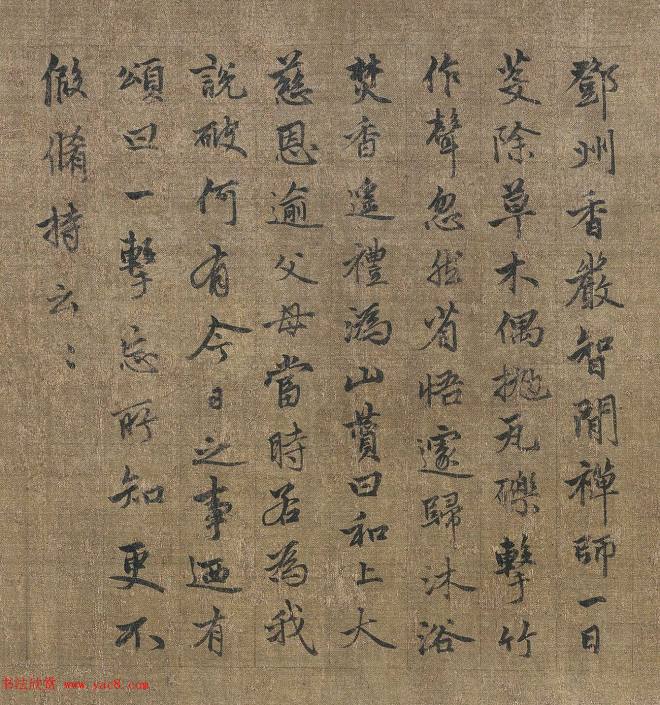 鄧州香嚴智閑禪師一日
芟除草木偶抛瓦礫擊竹
作聲忽然省悟遽歸沐浴
焚香遙禮溈山賛曰和上大
慈恩逾父母當時若為我
說破何有今日之事迺有
頌曰一擊忘所知更不
假脩持云〻
书法欣赏 www.yac8.com